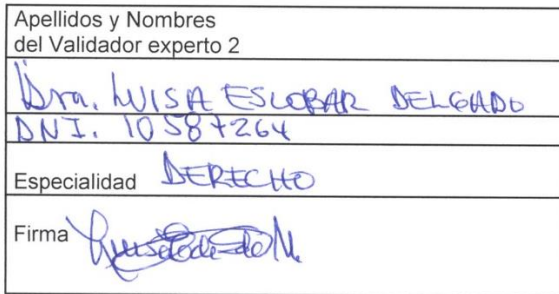 Apellidos y Nombres
del Validador experto 2
Dra. LUISA ESCOBAR DELGADO
DNI. 10587264
Especialidad DERECHO
Firma